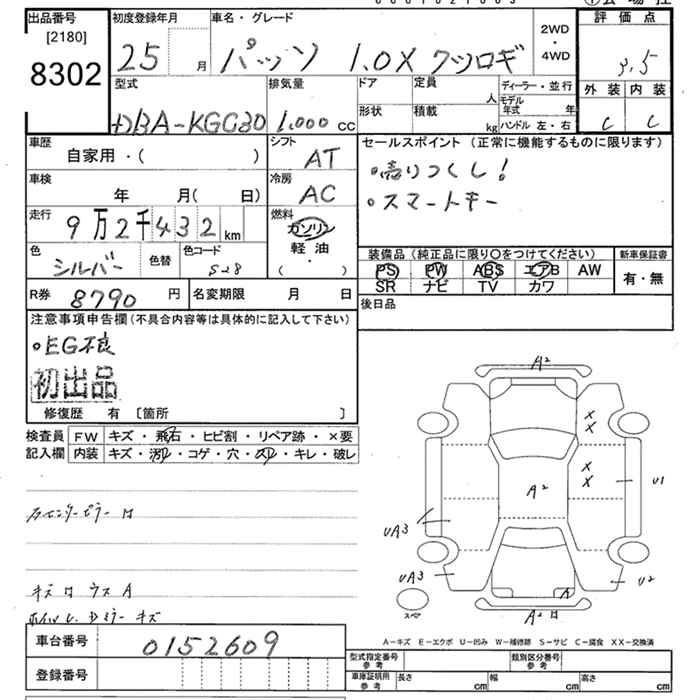 出品番号
[2180]
8302
初度登録年月
25 月
車名・グレード
パッソ 1.0X クツロギ
2WD
・
4WD
評価点
3.5
型式
DBA-KGC30
排気量
1.000 cc
ドア
定員
人
ディーラー・並行
形状
積載
kg
モデル年式 年
ハンドル 左・右
外装 内装
C C
車歴
自家用・( )
シフト
AT
車検
年 月( 日)
冷房
AC
走行
9万2千432 km
燃料
ガソリン
軽油
・
( )
色
シルバー
色替
色コード
S28
R券 8790 円
名変期限 月 日
セールスポイント (正常に機能するものに限ります)
・売りつくし!
・スマートキー
装備品 (純正品に限り○をつけてください)
PS PW ABS エアB AW
SR ナビ TV カワ
新車保証書
有・無
後日品
注意事項申告欄 (不具合内容等は具体的に記入して下さい)
・EG不良
初出品
修復歴 有 [箇所 ]
検査員
記入欄
FW キズ・飛石・ヒビ割・リペア跡・×要
内装 キズ・汚レ・コゲ・穴・スレ・キレ・破レ
キズ ウス A
キズ
A2
X
X
X
X
A2
U1
UA3
UA3
U2
A
A2
スペア
A-キズ E-エクボ U-凹み W-補修跡 S-サビ C-腐食 XX-交換済
車台番号 0152609
登録番号
型式指定番号
参考
類別区分番号
参考
車庫証明用
参考
長さ cm
幅 cm
高さ cm